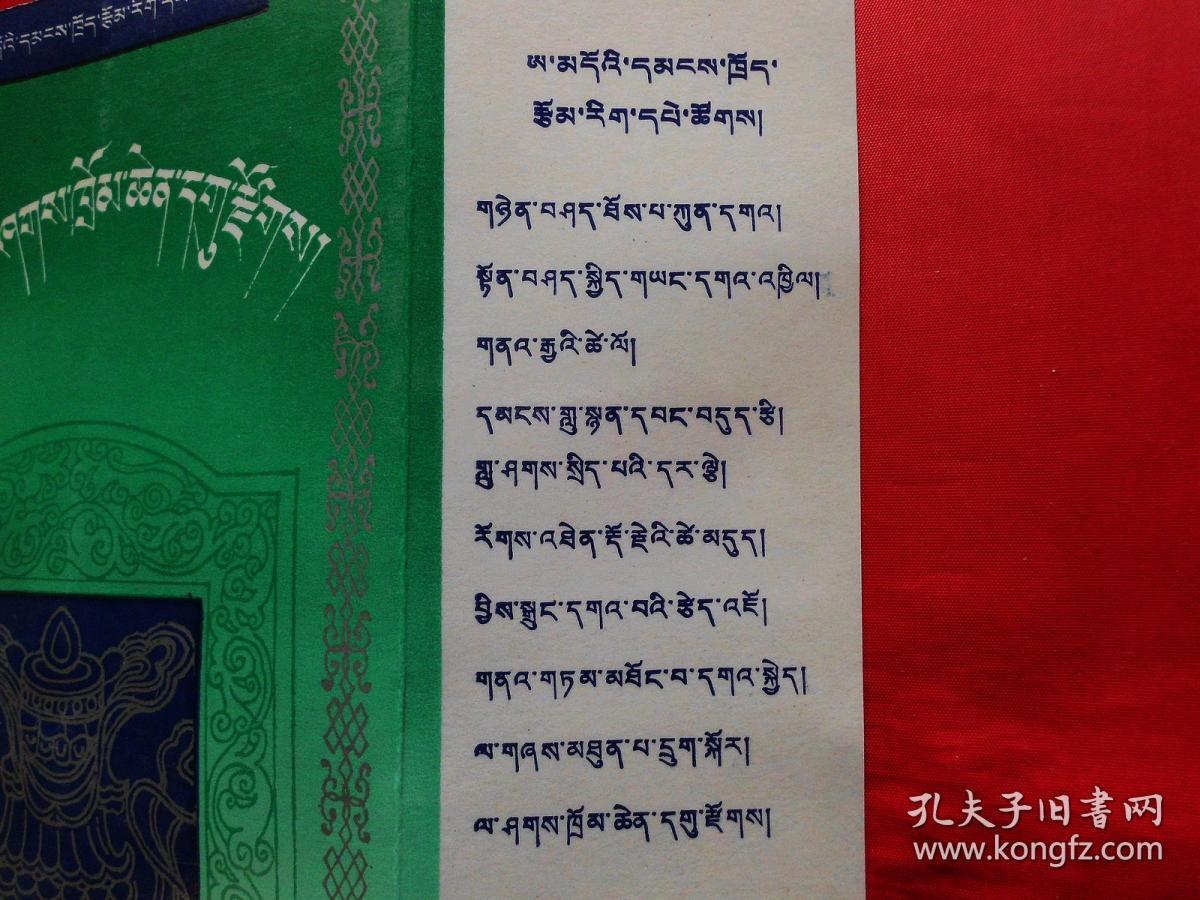 མདོའི་དམངས་ཁྲོད་རྩོམ་རིག་དཔེ
ཤགས་ཁྲོམ་ཆེན་དགུ་རྫོགས།
ཨ་མདོའི་དམངས་ཁྲོད་
རྩོམ་རིག་དཔེ་ཚོགས།
གཉེན་བཤད་ཐོས་པ་ཀུན་དགའ།
སྟོན་བཤད་སྐྱིད་གཡང་དགའ་འཁྱིལ།
གནའ་རྒྱའི་ཚེ་ལོ།
དམངས་གླུ་སྙན་དབང་བདུད་རྩི།
གླུ་ཤགས་སྲིད་པའི་དར་ལྕེ།
རོགས་འཐེན་རྡོ་རྗེའི་ཚེ་མདུད།
བྱིས་སྒྲུང་དགའ་བའི་རྩེད་འཇོ།
གནའ་གཏམ་མཐོང་བ་དགའ་སྐྱེད།
ལ་གཞས་མཐུན་པ་དྲུག་སྐོར།
ལ་ཤགས་ཁྲོམ་ཆེན་དགུ་རྫོགས།
孔夫子旧书网
www.kongfz.com